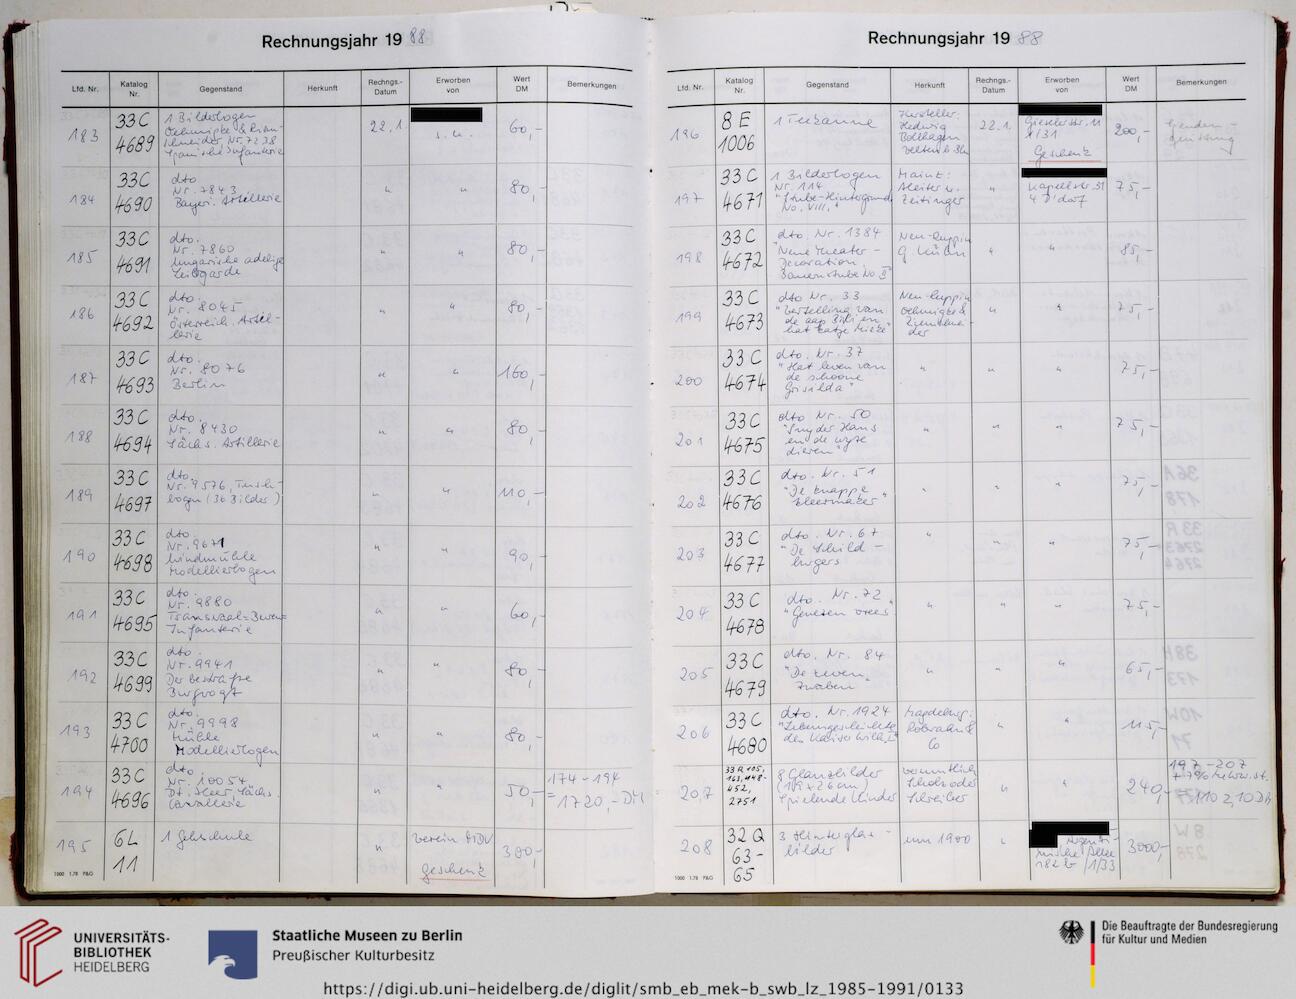 Rechnungsjahr 19 88
Lfd. Nr. Katalog Nr. Gegenstand Herkunft Rechngs.-Datum Erworben von Wert DM Bemerkungen
183 33 C 4689 1 Bilderbogen Oehmigke & Riemschneider Nr. 7238 Spanische Infanterie 22.1. s. u. 60,-
184 33 C 4690 dto Nr. 7843 Bayer. Artillerie " " 80,-
185 33 C 4691 dto. Nr. 7860 Ungarische adelige Leibgarde " " 80,-
186 33 C 4692 dto. Nr. 8045 Österreich. Artillerie " 80,-
187 33 C 4693 dto. Nr. 8076 Berlin " " 160,-
188 33 C 4694 dto. Nr. 8430 Sächs. Artillerie " " 80,-
189 33 C 4697 dto. Nr. 9576, bogen (36 Bilder) " " 110,-
190 33 C 4698 dto. Nr. 9671 Windmühle Modellierbogen " " 90,-
191 33 C 4695 dto. Nr. 9880 Transvaal= Infanterie " " 60,-
192 33 C 4699 dto. Nr. 9941 Der bestrafte Burgvogt " " 80,-
193 33 C 4700 dto. Nr. 9998 Mühle Modellierbogen " " 80,-
194 33 C 4696 dto Nr. 10054 Dt. Heer, Sächs. Cavallerie " " 50,- 174-194 = 1720,- DM
195 6L 11 1 " Verein MDV Geschenk 300,-
1000 1.78 P&G
Rechnungsjahr 19 88
Lfd. Nr. Katalog Nr. Gegenstand Herkunft Rechngs.-Datum Erworben von Wert DM Bemerkungen
196 8 E 1006 1 Teekanne Hersteller: Hedwig Bollhagen 22.1. Geschenk 200,-
197 33 C 4671 1 Bilderbogen Nr. 114 "Stube-Hintergrund No. VIII." Mainz: Scholz " 4 D'dorf 75,-
198 33 C 4672 dto. Nr. 1384 "Neue Theater-Decoration, Bauernstube No Neu-Ruppin G. Kühn " " 85,-
199 33 C 4673 dto Nr. 33 "Vertelling van de aap Neu-Ruppin Oehmigke & Riemschneider " " 75,-
200 33 C 4674 dto. Nr. 37 "Het leven van de schoone Griselda" " " " 75,-
201 33 C 4675 dto Nr. 50 "Snyder Hans en de wyze dieren" " " " 75,-
202 33 C 4676 dto. Nr. 51 "De knappe kleermaker" " " " 75,-
203 33 C 4677 dto. Nr. 67 "De Schildburgers " " " 75,-
204 33 C 4678 dto. Nr. 72 "Genezen vrees " " " 75,-
205 33 C 4679 dto. Nr. 84 "De zeven Zwaben " " " 65,-
206 33 C 4680 dto. Nr. 1924 "Lebensgeschichte des Kaiser Wilh. I" Magdeburg: Robrahn & Co " " 115,-
207 33 R 452, 2751 8 Glanzbilder (19 x 26 cm) Spielende Kinder vermutlich " " 240,- 197-207 + 7% Mehrw.st. 1102,10 DM
208 32 Q 63-65 3 Hinterglasbilder um 1900 " Allee 182 b 1/33 3000,-
1000 1.78 P&G
UNIVERSITÄTS-
BIBLIOTHEK
HEIDELBERG
Staatliche Museen zu Berlin
Preußischer Kulturbesitz
Die Beauftragte der Bundesregierung
für Kultur und Medien
https://digi.ub.uni-heidelberg.de/diglit/smb_eb_mek-b_swb_lz_1985-1991/0133